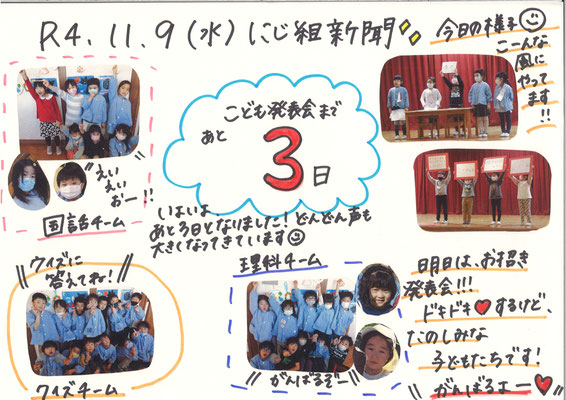 R4.11.9(水)にじ組新聞
今日の様子
こーんな
風に
やって
ます!!
こども発表会まで
あと
3日
"えい
えい
おー!!"
国語チーム
いよいよ、
あと3日となりました!どんどん声も
大きくなってきています
クイズに
答えてね!
クイズチーム
理科チーム
"がんばるぞー"
明日は、お招き
発表会!!!
ドキドキ♥するけど、
たのしみな
子どもたちです!
"がんばるよー♥"